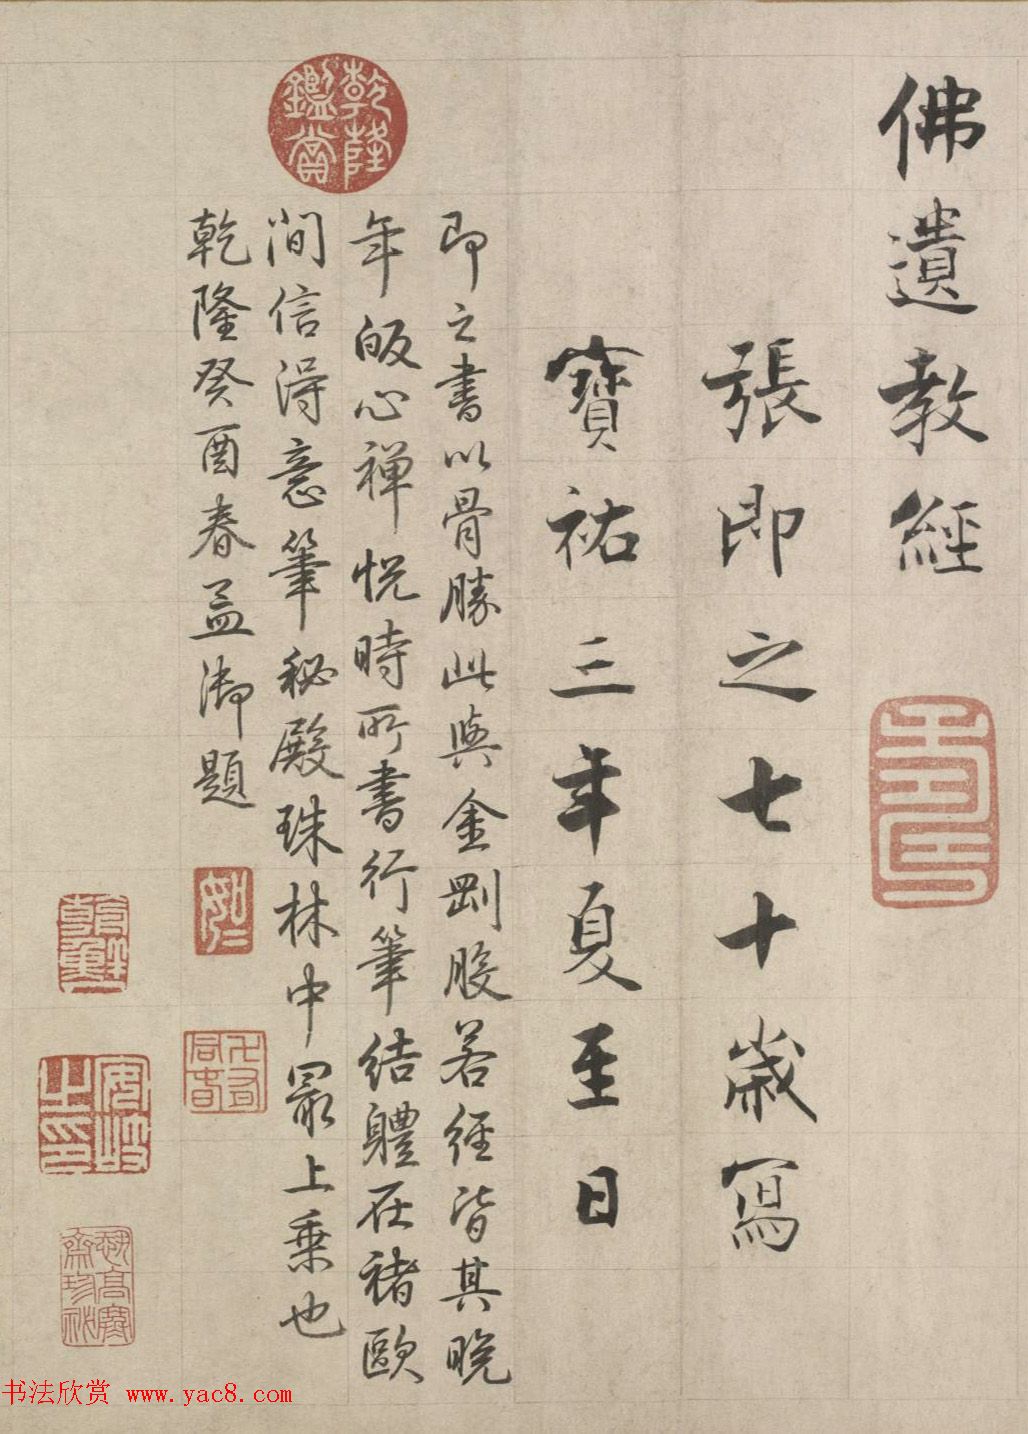 佛遺教經
張即之七十歲寫
寶祐三年夏至日
即之書以骨勝此與金剛般若經皆其晚
年皈心禅悦時所書行筆結體在褚歐
間信得意筆秘殿珠林中最上乗也
乾隆癸酉春孟御題
乾隆鑑賞
書法欣賞 www.yac8.com